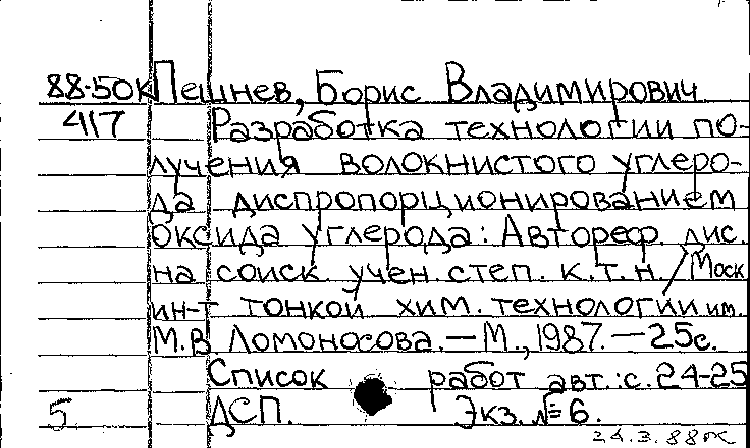 88-50к Пешнев, Борис Владимирович
417 Разработка технологии по-
лучения волокнистого углеро-
да диспропорционированием
оксида углерода: Автореф. дис.
на соиск учен. степ. к.т.н. / Моск
ин-т тонкой хим. технологии им.
М.В Ломоносова. — М., 1987. — 25с.
Список работ авт.: с. 24-25
5 ДСП. Экз. № 6.
24.3.88